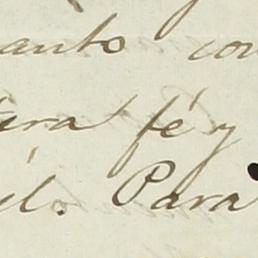 anto con
tura fé y
él. Para